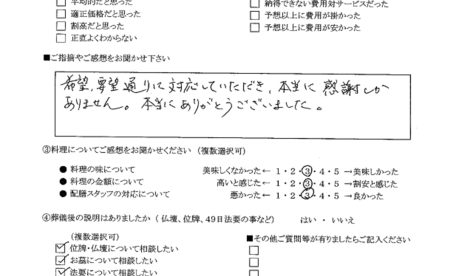 □ 平均的だと思った □ 納得できない費用対サービスだった
□ 適正価格だと思った □ 予想以上に費用が掛かった
□ 割高だと思った □ 予想以上に費用が安かった
□ 正直よくわからない
■ご指摘やご感想をお聞かせ下さい
希望、要望通りに対応していただき、本当に感謝しか
ありません。本当にありがとうございました。
③料理についてご感想をお聞かせください（複数選択可）
● 料理の味について 美味しくなかった← 1・2・3・4・5 →美味しかった
● 料理の金額について 高いと感じた← 1・2・3・4・5 →割安と感じた
● 配膳スタッフの対応について 悪かった← 1・2・3・4・5 →良かった
④葬儀後の説明はありましたか（仏壇、位牌、49日法要の事など） はい ・ いいえ
（複数選択可） ■その他ご質問等が有りましたらご記入ください
☑ 位牌・仏壇について相談したい □
☑ お墓について相談したい □
☑ 法要について相談したい □